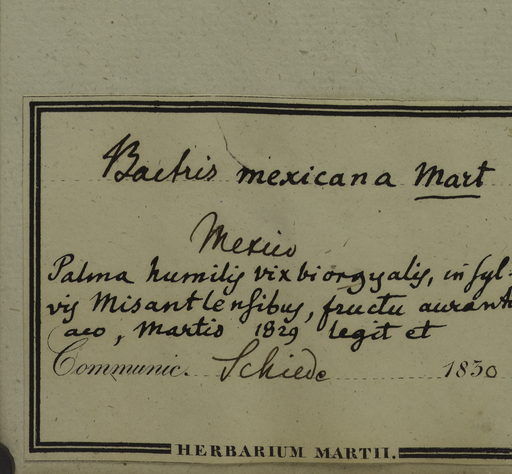 Bactris mexicana Mart
Mexico
Palma humilis vix biorgyalis, in syl-
vis Misantlensibus, fructu aurant
aco, Martio 1829 legit et
Communic. Schiede 1830
HERBARIUM MARTII.